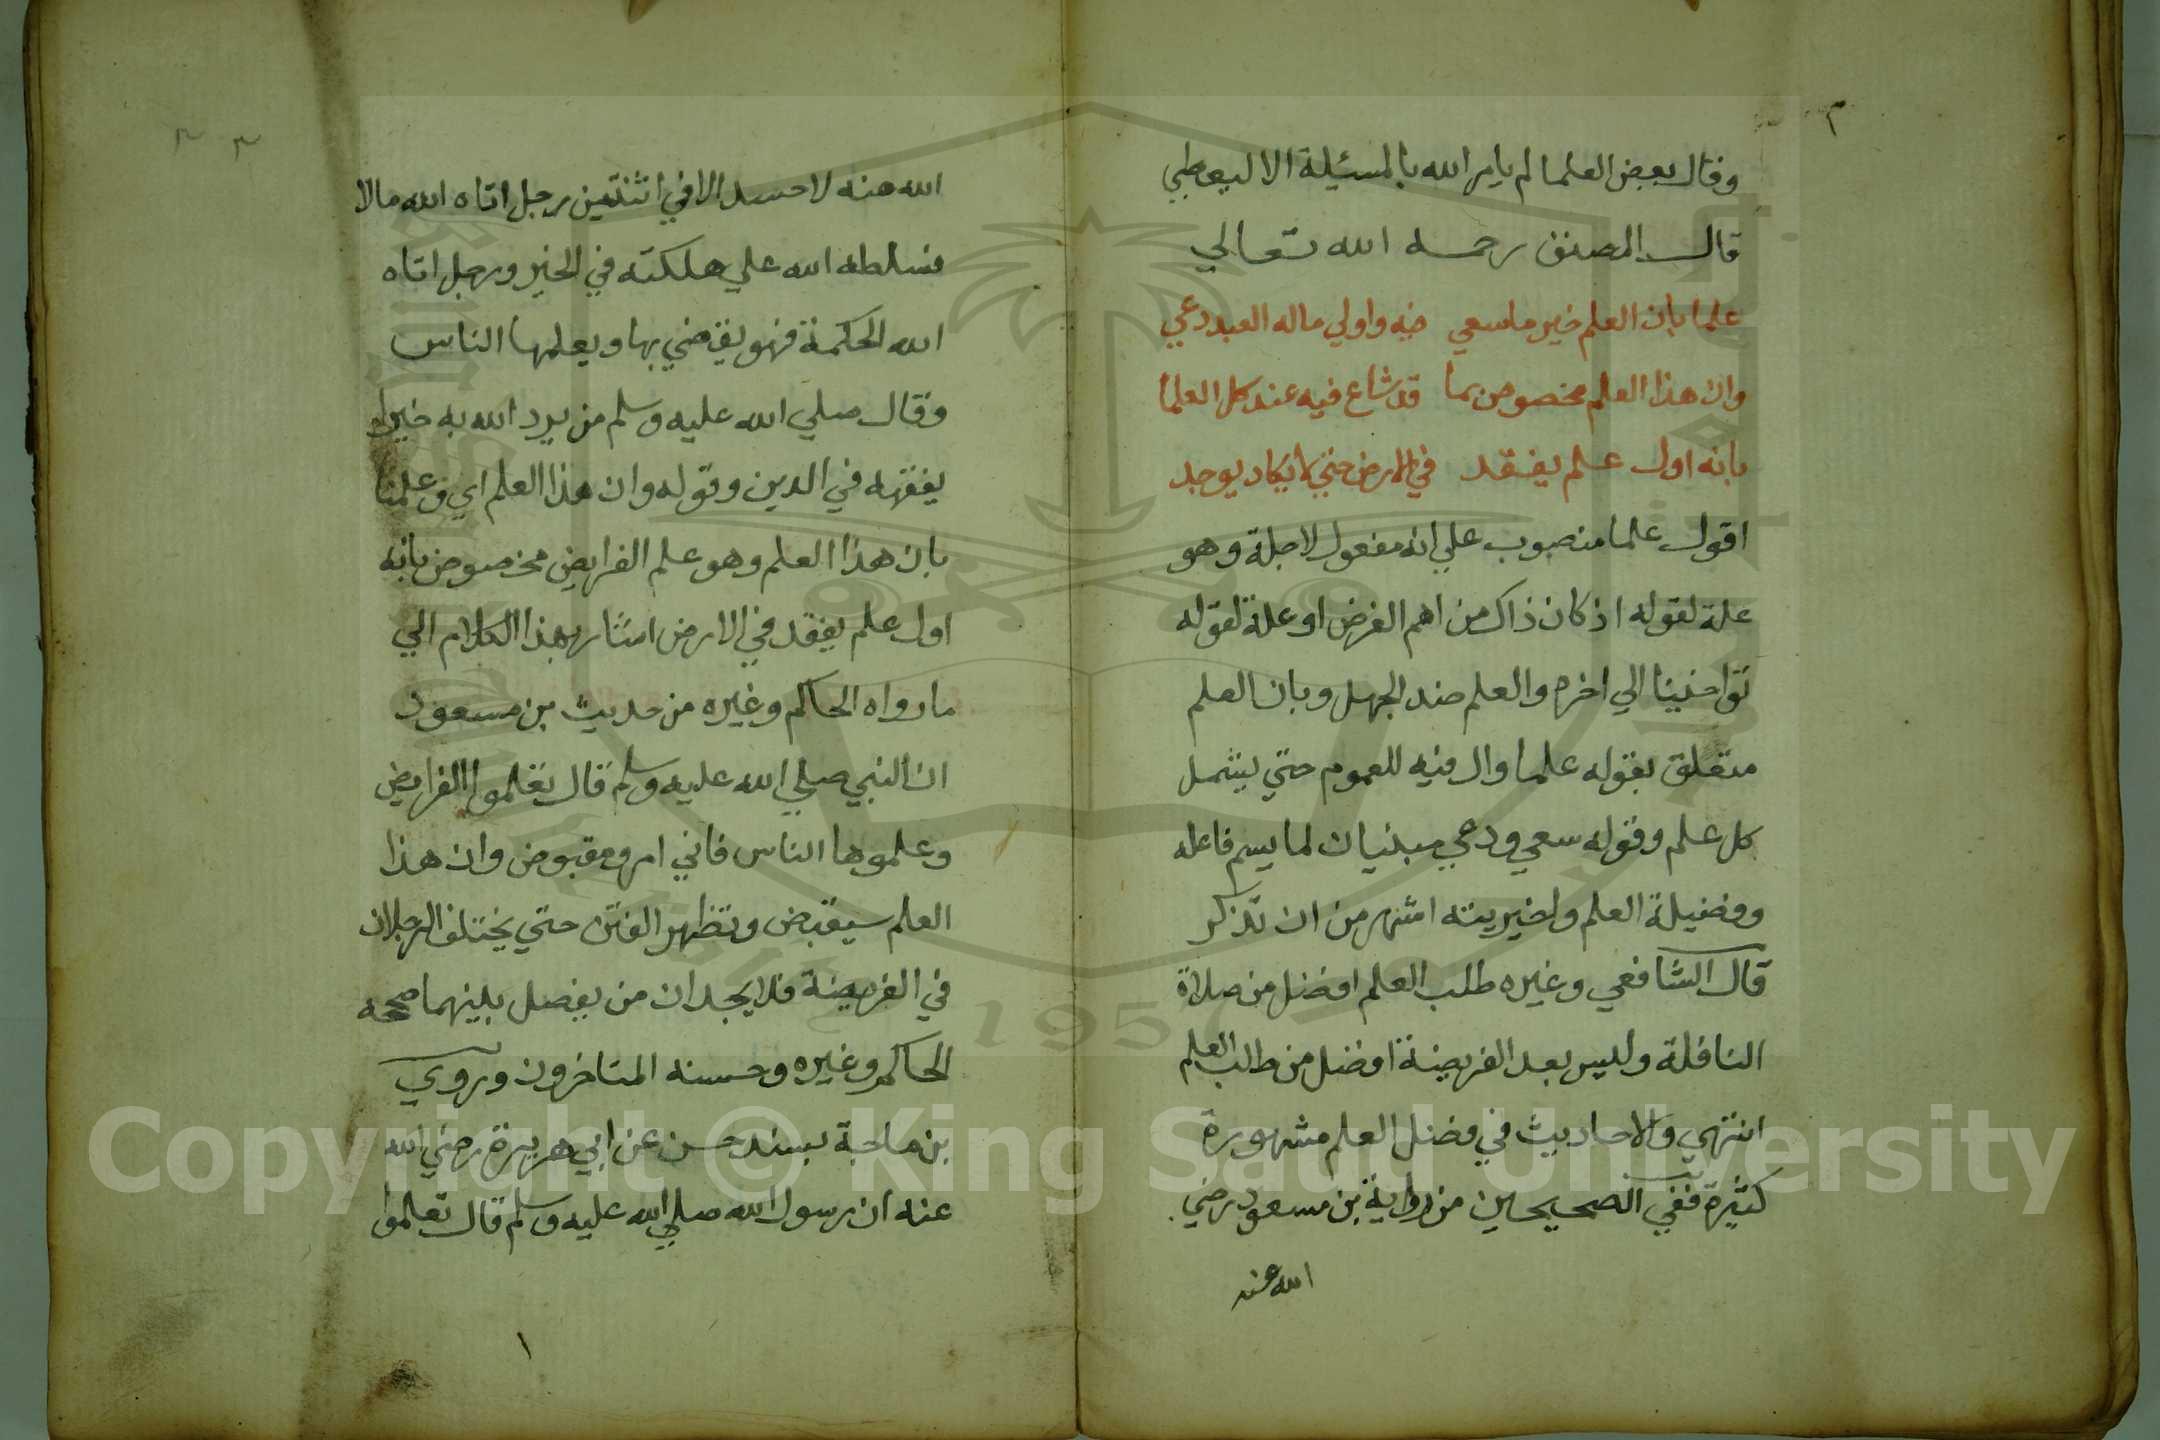 وقال بعض العلما لم يامر الله بالمسئيلة الا ليعطي
قال المصنف رحمه الله تعالي
علما بان العلم خير ما سعي فيه واولي ماله العبد دعي
وان هذا العلم مخصوص بما قد شاع فيه عند كل العلما
بانه اول علم يفقد في الارض حتي لا يكاد يوجد
اقول علما منصوب علي انه مفعول لاجلة وهو
علة لقوله اذ كان ذاك من اهم الغرض او علة لقوله
تواخينا الي اخره والعلم ضد الجهل وبان العلم
متعلق بقوله علما وال فيه للعموم حتي يشمل
كل علم وقوله سعي ودعي مبنيان لما يسم فاعله
وفضيلة العلم واخيريته اشهر من ان تذكر
قال الشافعي وغيره طلب العلم افضل من صلاة
النافلة وليس بعد الفريضة افضل من طلب العلم
انتهي والاحاديث في فضل العلم مشهورة
كثيرة ففي الصحيحين من رواية بن مسعود رضي
الله عنه
الله عنه لا حسد الا في اثنتين رجل اتاه الله مالا
فسلطه الله علي هلكته في الخير ورجل اتاه
الله الحكمة فهو يقضي بها ويعلمها الناس
وقال صلي الله عليه وسلم من يرد الله به خيرا
يفقهه في الدين وقوله وان هذا العلم اي وعلمنا
بان هذا العلم وهو علم الفرايض مخصوص بانه
اول علم يفقد في الارض اشار بهذا الكلام الي
ما رواه الحاكم وغيره من حديث بن مسعود
ان النبي صلي الله عليه وسلم قال تعلموا الفرايض
وعلموها الناس فاني امرو مقبوض وان هذا
العلم سيقبض وتظهر الفتن حتي يختلف الرجلان
في الفريضة فلا يجدان من يفصل بينهما صححه
الحاكم وغيره وحسنه المتاخرون وروي
بن ماجة بسند حسن عن ابي هريرة رضي الله
عنه ان رسول الله صلي الله عليه وسلم قال تعلموا
Copyright © King Saud University
1957